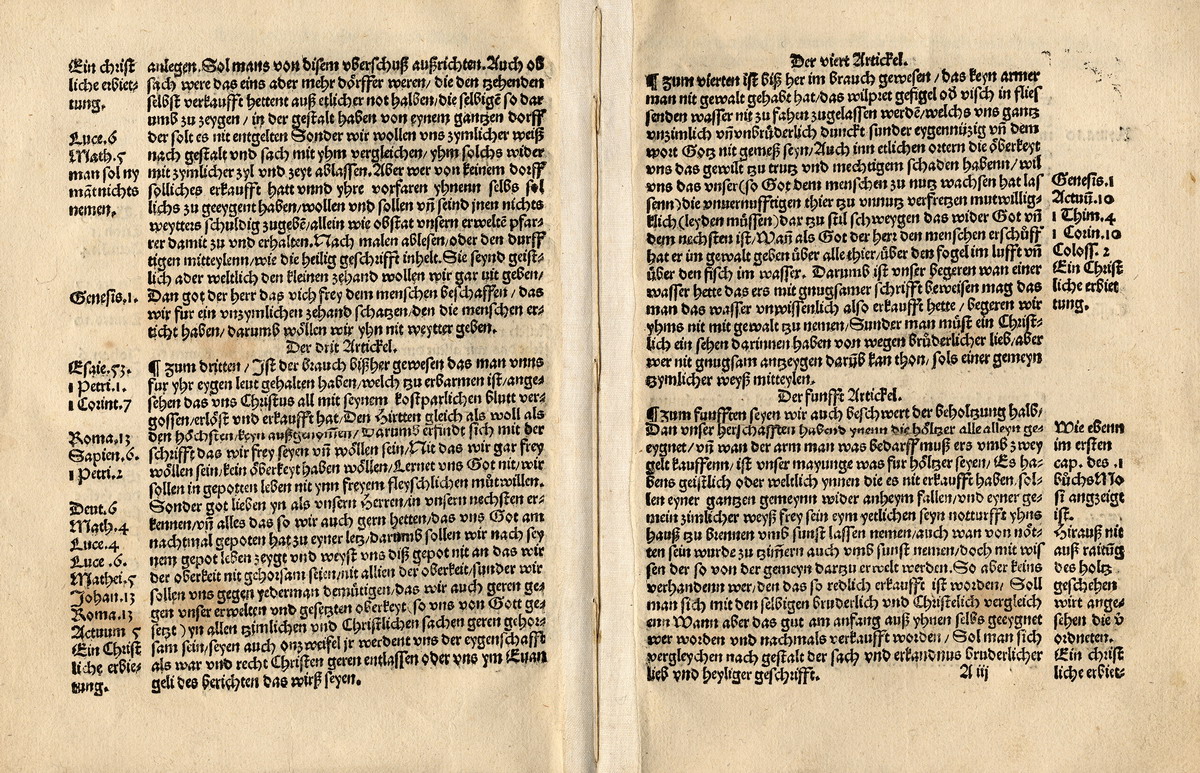 Ein christ
liche erbiet-
tung.
Luce.6
Math.5
man sol ny
māt nichts
nemen.
Genesis.1.
anlegen. Sol mans von disem vberschuß außrichten. Auch ob
sach were das eins aber mehr dörffer weren/ die den tzehenden
selbst verkaufft hettent auß etlicher not halben/ die selbigē so dar
umb zu zeygen/ in der gestalt haben von eynem gantzen dorff
der solt es nit entgelten Sonder wir wollen vns zymlicher weiß
nach gestalt vnd sach mit yhm vergleichen/ yhm solchs wider
mit zymlicher zyl vnd zeyt ablassen. Aber wer von keinem dorff
solliches erkaufft hatt vnnd yhre vorfaren yhnenn selbs sol
lichs zu geeygent haben/ wollen vnd sollen vñ seind jnen nichts
weytters schuldig zugebē/ allein wie obstat vnsern erweltē pfar-
rer damit zu vnd erhalten. Nach malen ablesen/ oder den durff
tigen mitteylenn/ wie die heilig geschrifft inhelt. Sie seynd geist-
lich ader weltlich den kleinen zehand wollen wir gar nit geben/
Dan got der herr das vich frey dem menschen beschaffen/ das
wir für ein vnzymlichen zehand schatzen/ den die menschen er-
ticht haben/ darumb wöllen wir yhn nit weytter geben.
Der drit Artickel.
Esaie.53.
1 Petri.1.
1 Corint.7
Roma.13
Sapien.6.
1 Petri.2
Deut.6
Math.4
Luce.4
Luce .6.
Mathei.5
Johan.13
Roma.13
Actuum 5
Ein Christ
liche erbie-
tung.
¶ Zum dritten/ Ist der brauch bißher gewesen das man vnns
fur yhr eygen leut gehalten haben/ welch zu erbarmen ist/ ange-
sehen das vns Christus all mit seynem kostparlichen blutt ver-
gossen/ erlöst vnd erkaufft hat/ Den Hirtten gleich als woll als
den höchsten/ keyn außgenomen/ Darumb erfindt sich mit der
schrifft das wir frey seyen vñ wöllen sein/ Nit das wir gar frey
wöllen sein/ kein öberkeyt haben wöllen/ Lernet vns Got nit/ wir
sollen in gepotten leben nit ynn freyem fleyschlichen mūtwillen.
Sonder got lieben yn als vnsern Herren/ in vnsern nechsten er-
kennen/ vñ alles das so wir auch gern hetten/ das vns Got am
nachtmal gepoten hat zu eyner letz/ darumb sollen wir nach sey
nem gepot leben zeygt vnd weyst vns diß gepot nit an das wir
der oberkeit nit gehorsam seien/ nit allien der oberkeit/ sunder wir
sollen vns gegen yederman demütigen/ das wir auch geren ge-
gen vnser erwelten vnd gesetzten oberkeyt (so vns von Gott ge-
setzt) yn allen tzimlichen vnd Christlichen sachen geren gehor-
sam sein/ seyen auch on zwyfel jr werdent vns der eygenschafft
als war vnd recht Christen geren entlassen oder vns ym Euan
geli des berichten das wirß seyen.
Der viert Artickel.
¶ Zum vierten ist biß her im brauch gewesen/ das keyn armer
man nit gewalt gehabt hat/ das wilpret gefigel od visch in flies
senden wasser nit zu fahen zugelassen werdē/ welchs vns gantz
vnzimlich vñ vnbrüderlich dunckt sunder eygennützig vñ dem
wort Gotz nit gemeß seyn/ Auch inn etlichen ortern die öberkeyt
vns das gewilt zu trutz vnd mechtigem schaden habenn/ wil
vns das vnser (so Got dem menschen zu nutz wachsen hat las
senn) die vnuernufftigen thier zu vnnutz verfretzen mutwillig-
klich (leyden müssen) dar zu stil schweygen das wider Got vñ
dem nechsten ist/ Wañ als Got der herr den menschen erschüff
hat er im gewalt geben über alle thier/ über den fogel im lufft vñ
über den fisch im wasser. Darumb ist vnser begeren wan einer
wasser hette das ers mit gnugsamer schrifft beweisen mag das
man das wasser vnwissenlich also erkaufft hette/ begeren wir
yhms nit mit gewalt zu nemen/ Sunder man müst ein Christ-
lich ein sehen darinnen haben von wegen brüderlicher lieb/ aber
wer nit gnugsam antzeygen darüb kan thon/ sols einer gemeyn
tzymlicher weyß mitteylen.
Genesis.1
Actuū.10
1 Thim.4
1 Corin.10
Coloss. 2
Ein Christ
liche erbiet
tung.
Der funfft Artickel.
¶ Zum funfften seyen wir auch beschwert der beholtzung halb/
Dan vnser herschafften habend ynenn die höltzer alle alleyn ge-
eygnet/ vñ wan der arm man was bedarff muß ers vmb zwey
gelt kauffenn/ ist vnser mayunge was fur höltzer seyen/ Es ha-
bens geistlich oder weltlich ynnen die es nit erkaufft haben/ sol-
len eyner gantzen gemeynn wider anheym fallen/ vnd eyner ge-
mein zimlicher weyß frey sein eym yetlichen seyn notturfft yhns
hauß zu brennen vmb sunst lassen nemen/ auch wan von nöt-
ten sein wurde zu zimern auch vmb sunst nemen/ doch mit wis
sen der so von der gemeyn dartzu erwelt werden. So aber keins
verhandenn wer/ den das so redlich erkaufft ist worden/ Soll
man sich mit den selbigen bruderlich vnd Christelich vergleich
enn Wann aber das gut am anfang auß yhnen selbs geeygnet
wer worden vnd nachmals verkaufft worden/ Sol man sich
vergleychen nach gestalt der sach vnd erkandnus bruderlicher
lieb vnd heyliger geschrifft.
A iij
Wie ebenn
im ersten
cap. des .1
būchs Mo
si angzeigt
ist.
Hirauß nit
auß raitūg
des holtz
geschehen
wirt ange-
sehen die v
ordneten.
Ein christ
liche erbiet-